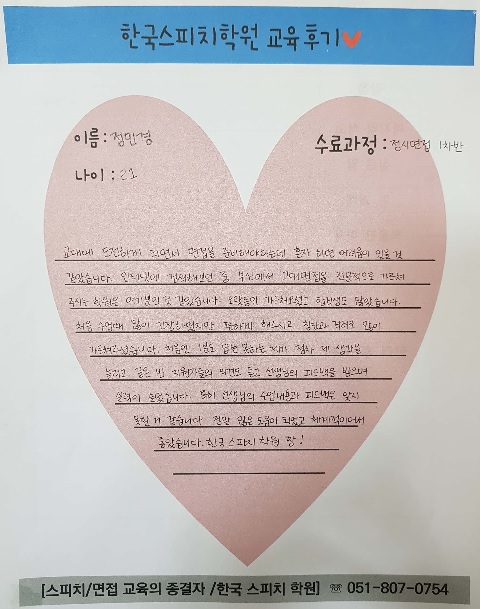 한국스피치학원 교육후기
이름 : 정민경
수료과정 : 정시면접 1차반
나이 : 21
교대에 도전하게 되면서 면접을 준비해야하는데 혼자 하면 어려움이 있을 것
같았습니다. 인터넷에 검색해보던 중 부산에서 교대면접을 전문적으로 가르쳐
주시는 학원은 여기뿐인 것 같았습니다.
처음 수업때 많이 긴장하였지만 편하게 해주시고 칭찬과 격려도 많이
가득해주셨습니다. 처음엔 1분도 답변 못하는 제가 점차 제 생각을
늘리고 같은 반 지원자들의 의견도 듣고 선생님의 피드백을 받으며
실력이 늘었습니다. 특히 선생님의 수업내용과 피드백은 잊지
못할 거 같습니다. 정말 많은 도움이 되었고 체계적이어서
좋았습니다. 한국 스피치 학원 짱!
[스피치/면접 교육의 종결자 /한국 스피치 학원] ☏ 051-807-0754